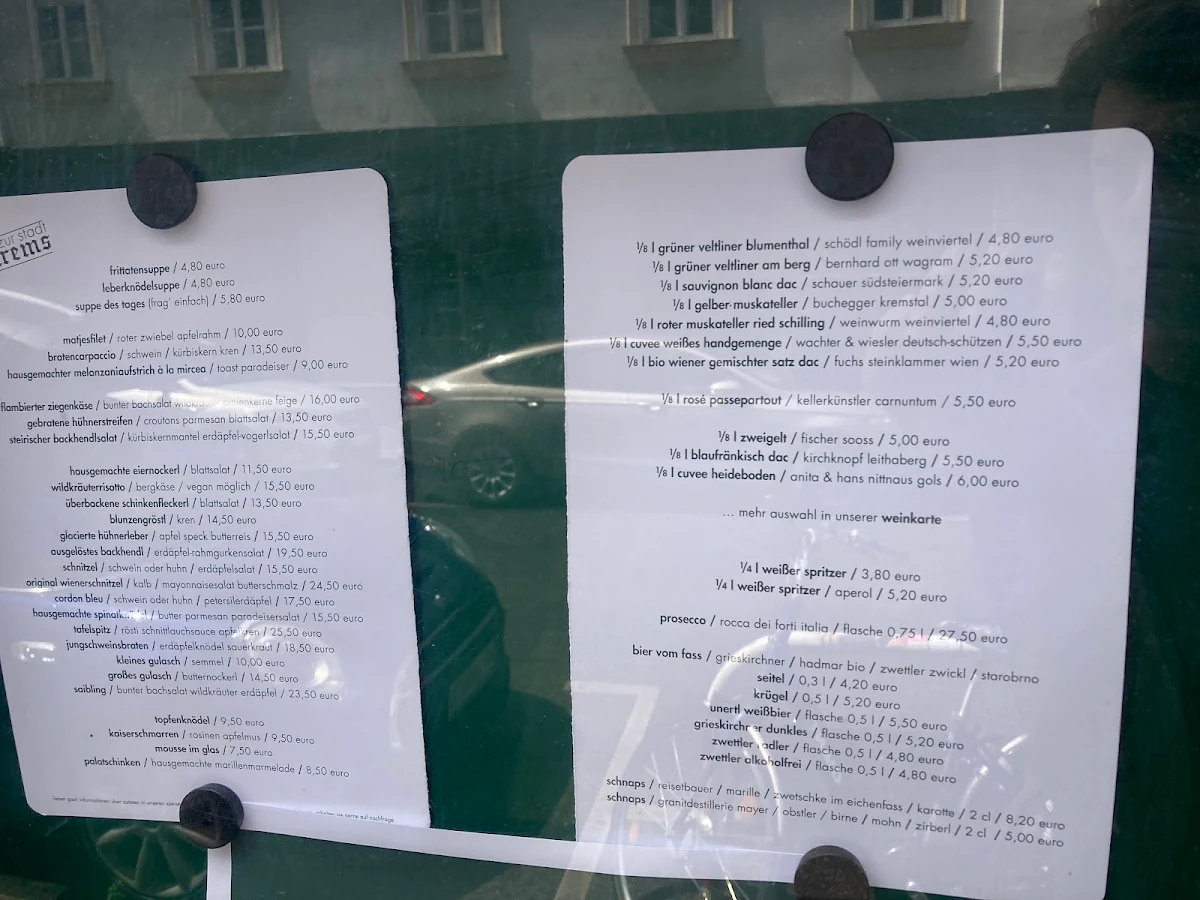 zur stadt
krems
frittatensuppe / 4,80 euro
leberknödelsuppe / 4,80 euro
suppe des tages (frag' einfach) / 5,80 euro
matjesfilet / roter zwiebel apfelrahm / 10,00 euro
bratencarpaccio / schwein / kürbiskern kren / 13,50 euro
hausgemachter melanzaniaufstrich à la mircea / toast paradeiser / 9,00 euro
flambierter ziegenkäse / bunter bachsalat wildkräuter pinienkerne feige / 16,00 euro
gebratene hühnerstreifen / croutons parmesan blattsalat / 13,50 euro
steirischer backhendlsalat / kürbiskernmantel erdäpfel-vogerlsalat / 15,50 euro
hausgemachte eiernockerl / blattsalat / 11,50 euro
wildkräuterrisotto / bergkäse / vegan möglich / 15,50 euro
überbackene schinkenfleckerl / blattsalat / 13,50 euro
blunzengröstl / kren / 14,50 euro
glacierte hühnerleber / apfel speck butterreis / 15,50 euro
ausgelöstes backhendl / erdäpfel-rahmgurkensalat / 19,50 euro
schnitzel / schwein oder huhn / erdäpfelsalat / 15,50 euro
original wienerschnitzel / kalb / mayonnaisesalat butterschmalz / 24,50 euro
cordon bleu / schwein oder huhn / petersilerdäpfel / 17,50 euro
hausgemachte spinatknödel / butter parmesan paradeisersalat / 15,50 euro
tafelspitz / rösti schnittlauchsauce apfelkren / 25,50 euro
jungschweinsbraten / erdäpfelknödel sauerkraut / 18,50 euro
kleines gulasch / semmel / 10,00 euro
großes gulasch / butternockerl / 14,50 euro
saibling / bunter bachsalat wildkräuter erdäpfel / 23,50 euro
topfenknödel / 9,50 euro
kaiserschmarren / rosinen apfelmus / 9,50 euro
mousse im glas / 7,50 euro
palatschinken / hausgemachte marillenmarmelade / 8,50 euro
lieber gast! informationen über zutaten in unseren sie gerne auf nachfrage.
1/8 l grüner veltliner blumenthal / schödl family weinviertel / 4,80 euro
1/8 l grüner veltliner am berg / bernhard ott wagram / 5,20 euro
1/8 l sauvignon blanc dac / schauer südsteiermark / 5,20 euro
1/8 l gelber muskateller / buchegger kremstal / 5,00 euro
1/8 l roter muskateller ried schilling / weinwurm weinviertel / 4,80 euro
1/8 l cuvee weißes handgemenge / wachter & wiesler deutsch-schützen / 5,50 euro
1/8 l bio wiener gemischter satz dac / fuchs steinklammer wien / 5,20 euro
1/8 l rosé passepartout / kellerkünstler carnuntum / 5,50 euro
1/8 l zweigelt / fischer sooss / 5,00 euro
1/8 l blaufränkisch dac / kirchknopf leithaberg / 5,50 euro
1/8 l cuvee heideboden / anita & hans nittnaus gols / 6,00 euro
... mehr auswahl in unserer weinkarte
1/4 l weißer spritzer / 3,80 euro
1/4 l weißer spritzer / aperol / 5,20 euro
prosecco / rocca dei forti italia / flasche 0,75 l / 27,50 euro
bier vom fass / grieskirchner / hadmar bio / zwettler zwickl / starobrno
seitel / 0,3 l / 4,20 euro
krügel / 0,5 l / 5,20 euro
unertl weißbier / flasche 0,5 l / 5,50 euro
grieskirchner dunkles / flasche 0,5 l / 5,20 euro
zwettler radler / flasche 0,5 l / 4,80 euro
zwettler alkoholfrei / flasche 0,5 l / 4,80 euro
schnaps / reisetbauer / marille / zwetschke im eichenfass / karotte / 2 cl / 8,20 euro
schnaps / granitdestillerie mayer / obstler / birne / mohn / zirberl / 2 cl / 5,00 euro